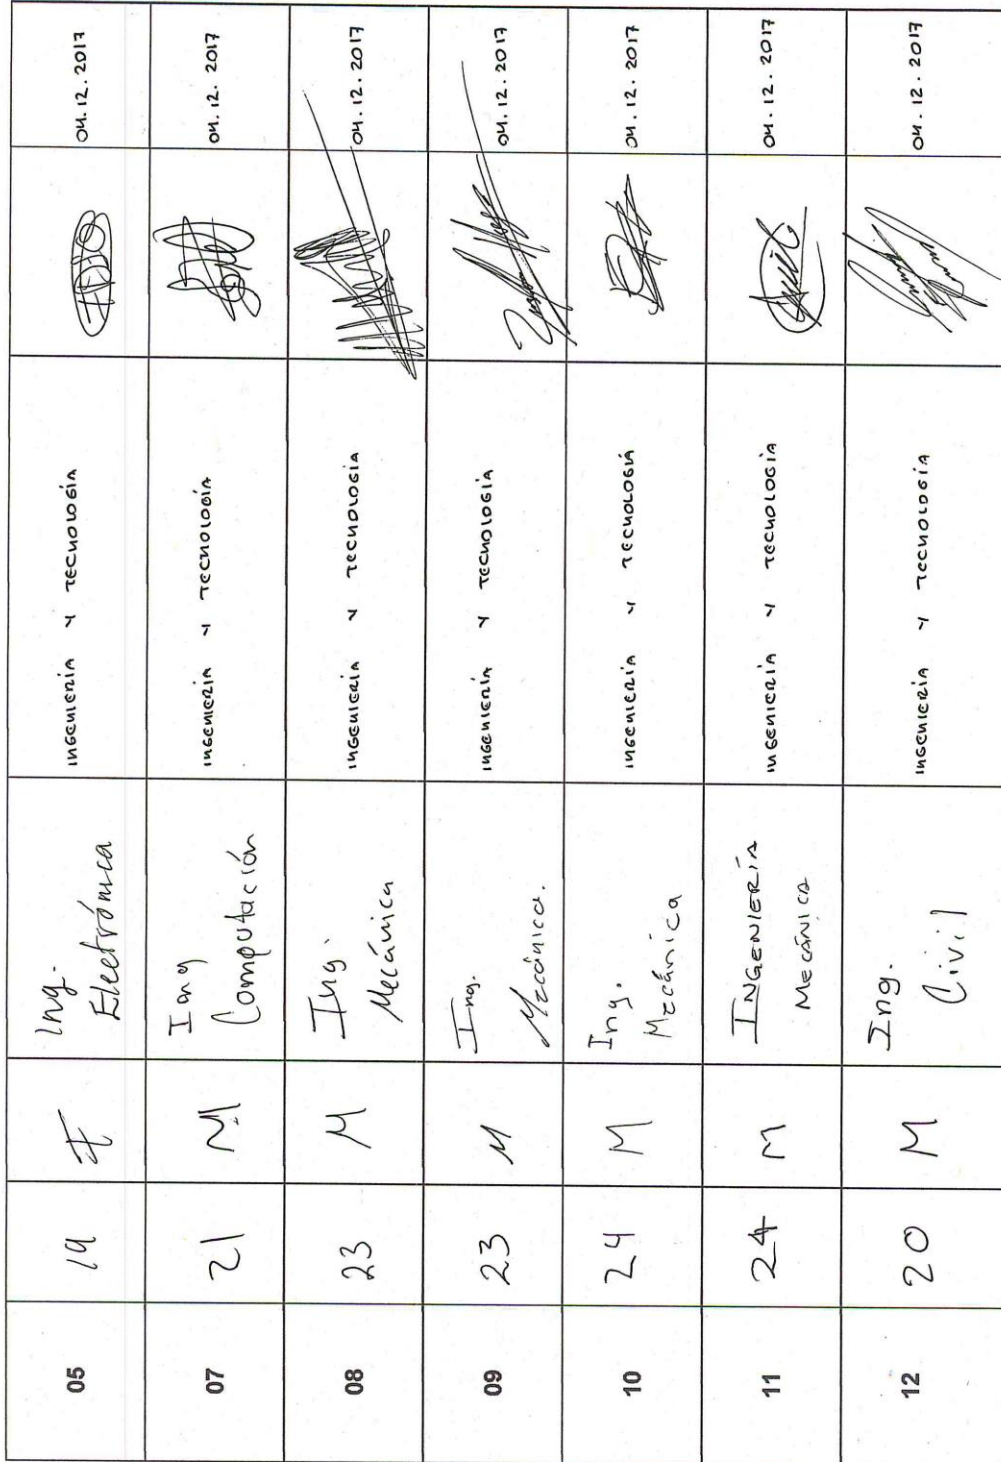 05 19 F Ing. Electrónica INGENIERÍA Y TECNOLOGÍA 04.12.2017
07 21 M Ing Computación INGENIERÍA Y TECNOLOGÍA 04.12.2017
08 23 M Ing. Mecánica INGENIERÍA Y TECNOLOGÍA 04.12.2017
09 23 M Ing. Mecánica. INGENIERÍA Y TECNOLOGÍA 04.12.2017
10 24 M Ing. Mecánica INGENIERÍA Y TECNOLOGÍA 04.12.2017
11 24 M INGENIERÍA MECÁNICA INGENIERÍA Y TECNOLOGÍA 04.12.2017
12 20 M Ing. Civil INGENIERÍA Y TECNOLOGÍA 04.12.2017